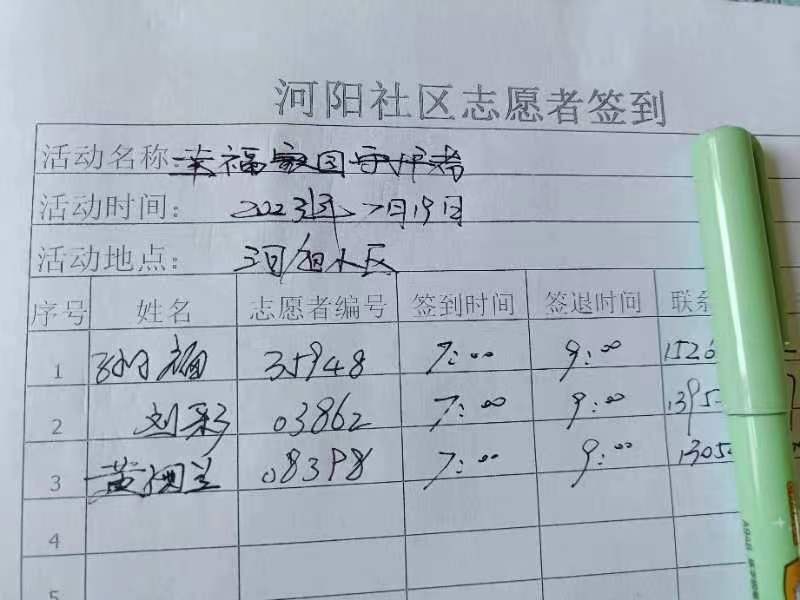 河阳社区志愿者签到
活动名称 幸福家园守护者
活动时间： 2023年7月19日
活动地点： 河阳小区
序号 姓名 志愿者编号 签到时间 签退时间 联系
1 福 35948 7:00 9:00 1526
2 刘彩 03862 7:00 9:00 1395
3 黄 兰 08398 7:00 9:00 1305
4
5